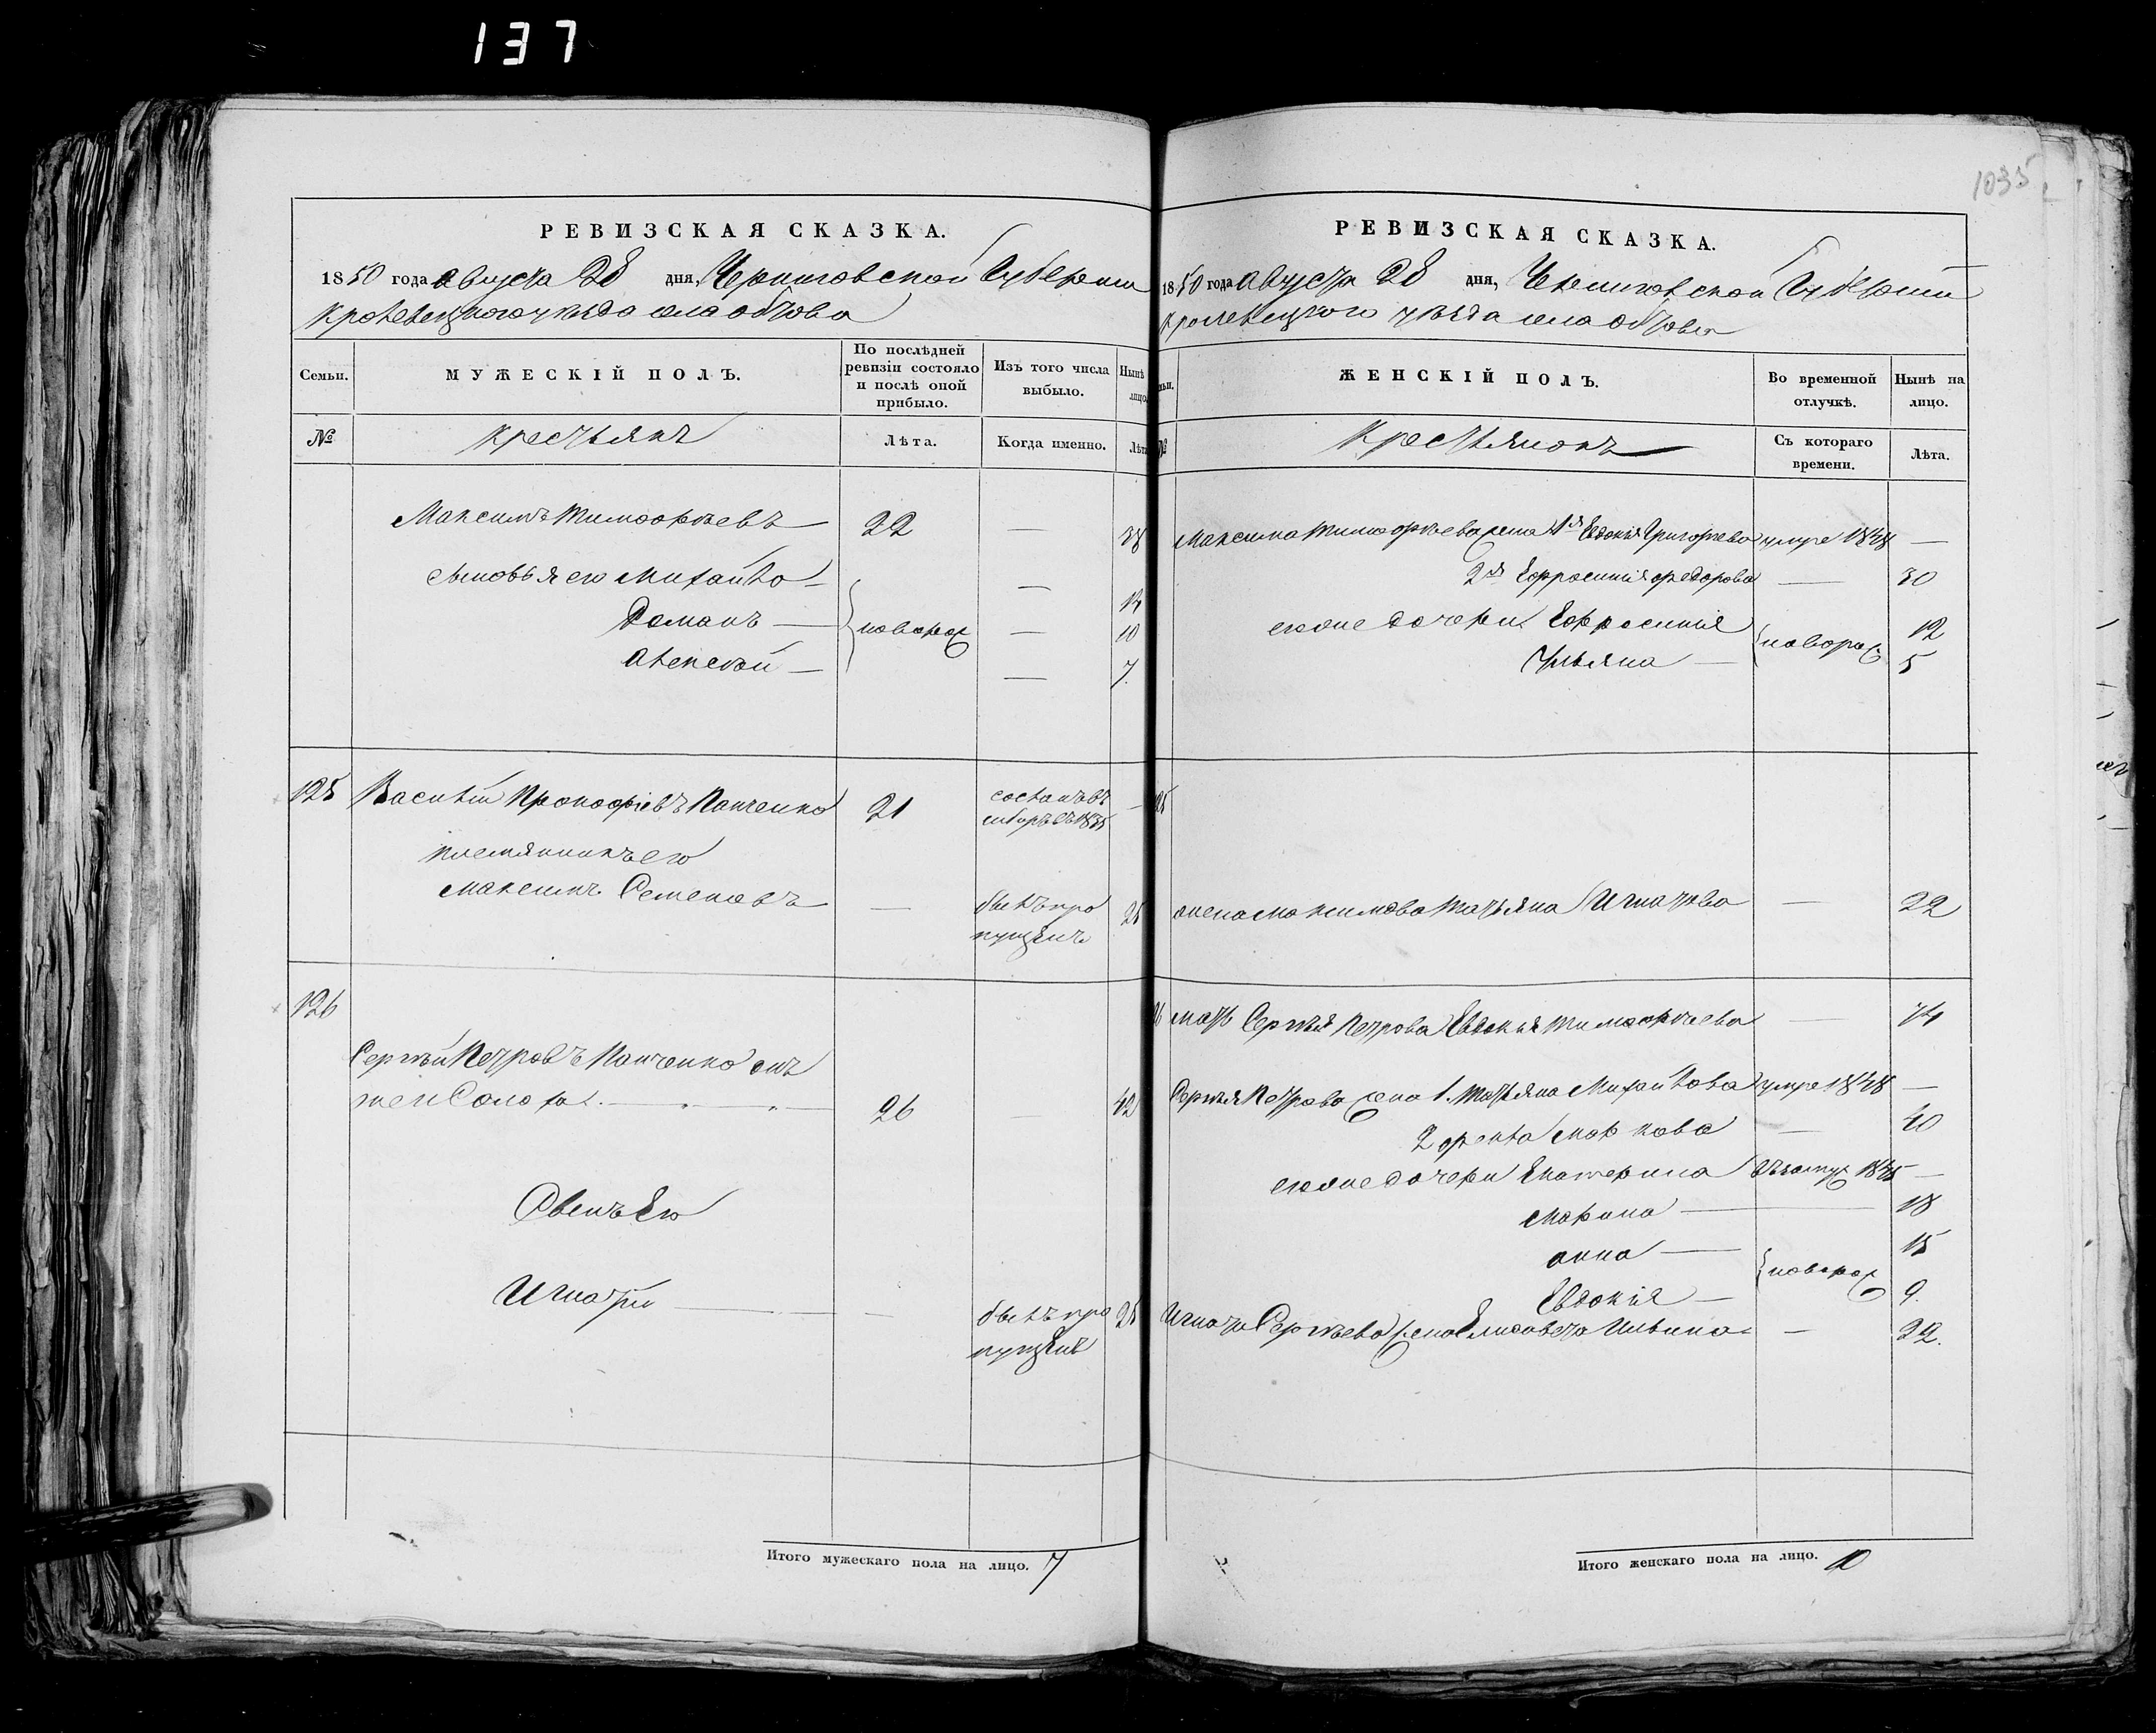 137
1035
РЕВИЗСКАЯ СКАЗКА.
1850 года августа 28 дня, Черниговской Губернии
Кролевецкого уезда села Обтова
Семьи.
МУЖЕСКІЙ ПОЛЪ.
По послѣдней ревизіи состояло и послѣ оной прибыло.
Изъ того числа выбыло.
Нынѣ лицо
№
Крестьянъ
Лѣта.
Когда именно.
Лѣта
Максимъ Тимофѣевъ — 22 — 38
Сыновья его Михайло —
Романъ — новорож — 10
Алексѣй — — 7.
125 Василий Прокофіевъ Панченко 21 —
племянникъ его
Максимъ Семеновъ — — былъ про 25
пущенъ
126
Сергѣй Петровъ Панченко онъ
26 — 42
Сынъ Его
Игнатий — — былъ про 25
пущенъ
Итого мужескаго пола на лицо. 7
РЕВИЗСКАЯ СКАЗКА.
1850 года августа 28 дня, Черниговской Губернии
Кролевецкого уезда села Обтова
ЖЕНСКІЙ ПОЛЪ.
Во временной отлучкѣ.
Нынѣ на лицо.
№
Крестьянокъ
Съ котораго времени.
Лѣта.
Максима Тимофѣева жена 1я Евдокія Григорьева умре 1848 —
2я Ефросинія Федорова — 30
его же дочери Ефросинія 12
Ульяна — новорож 5
25
жена Максимова Татьяна Игнатова — 22
26 мать Сергѣя Петрова Евдокія Тимофѣева — 74
Сергѣя Петрова жена 1. Татьяна Михайлова умре 1848 —
2 Фекла Маркова — 40
его же дочери Екатерина въ замуж 1845 —
Марина — 18
анна — 15
новорож
Евдокія — 9.
Игната Сергѣева жена Елисавета Ильина — 22.
Итого женскаго пола на лицо. 10